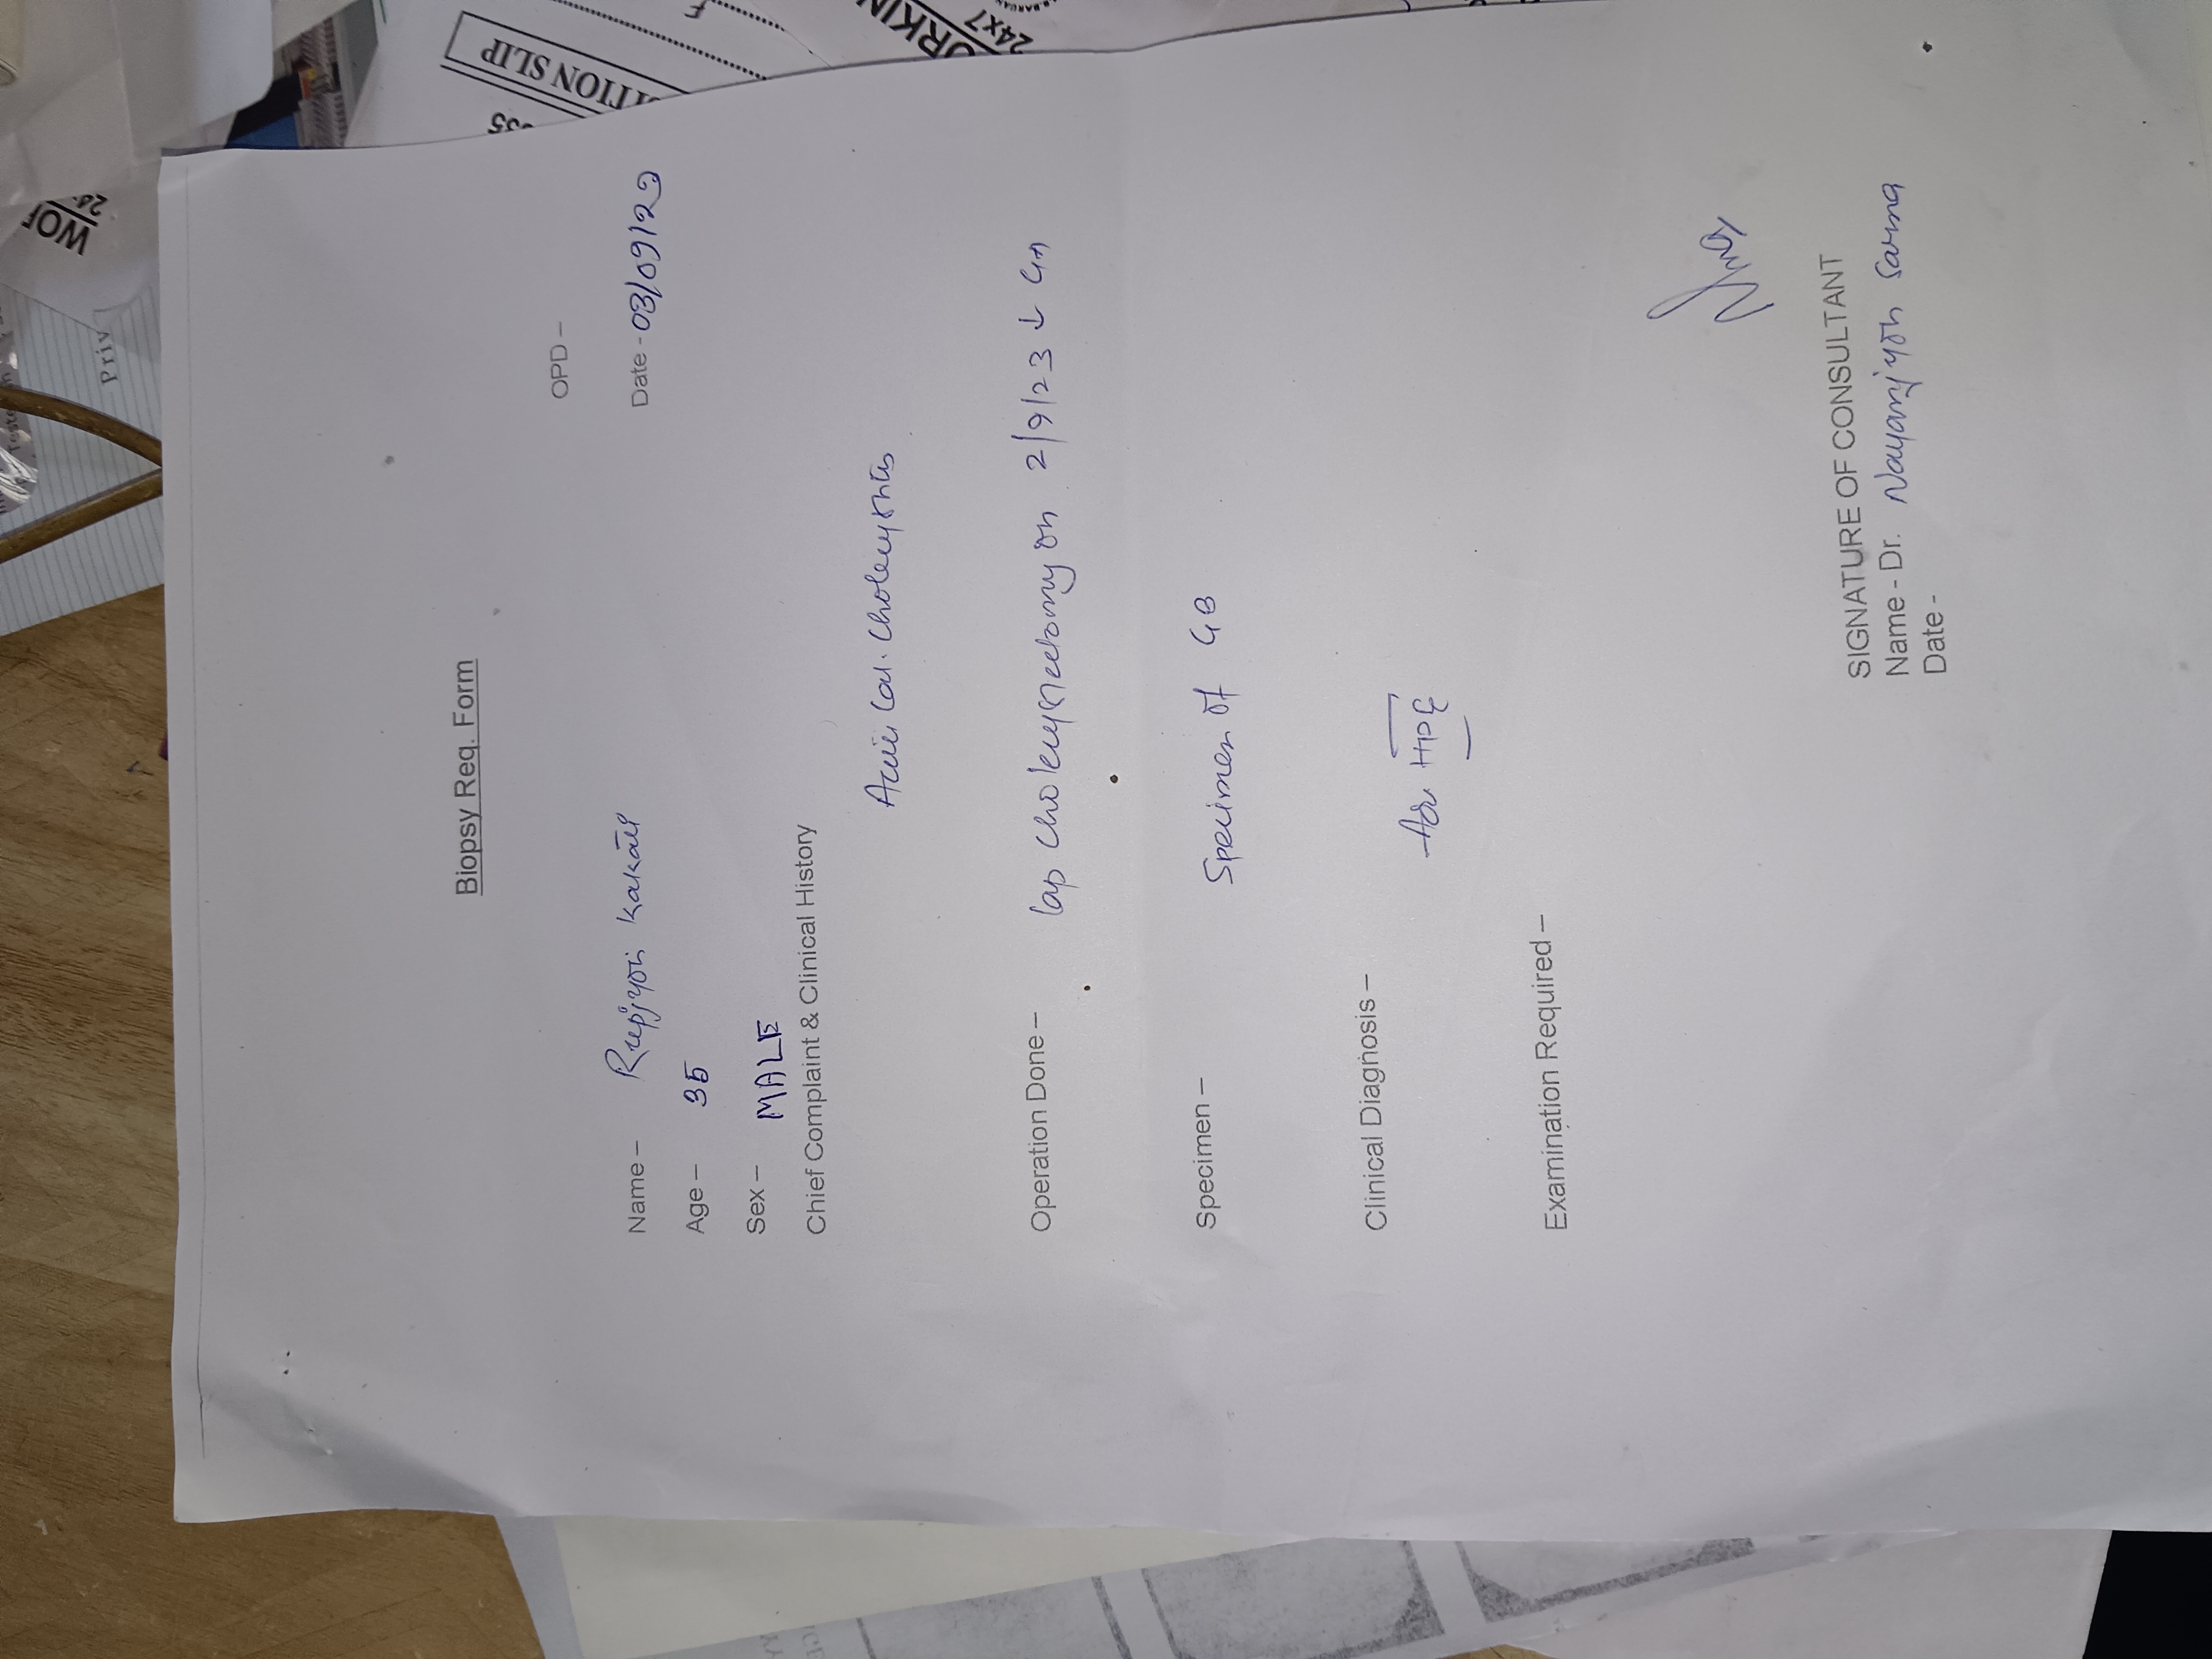 Biopsy Req. Form
OPD –
Name – Rupjyoti Kakati
Date - 03/09/23
Age – 35
Sex – MALE
Chief Complaint & Clinical History
Acute Cal. Cholecystitis
Operation Done – Lap Cholecystectomy on 2/9/23 ↓ GA
Specimen – Specimen of GB
Clinical Diagnosis –
For HPE
Examination Required –
SIGNATURE OF CONSULTANT
Name - Dr. Nayanjyoti Sarma
Date -
ITION SLIP
24x7
WOR
Priv